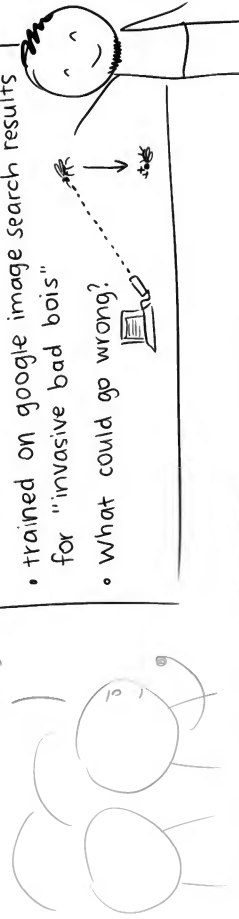 • trained on google image search results
for "invasive bad bois"
• What could go wrong?